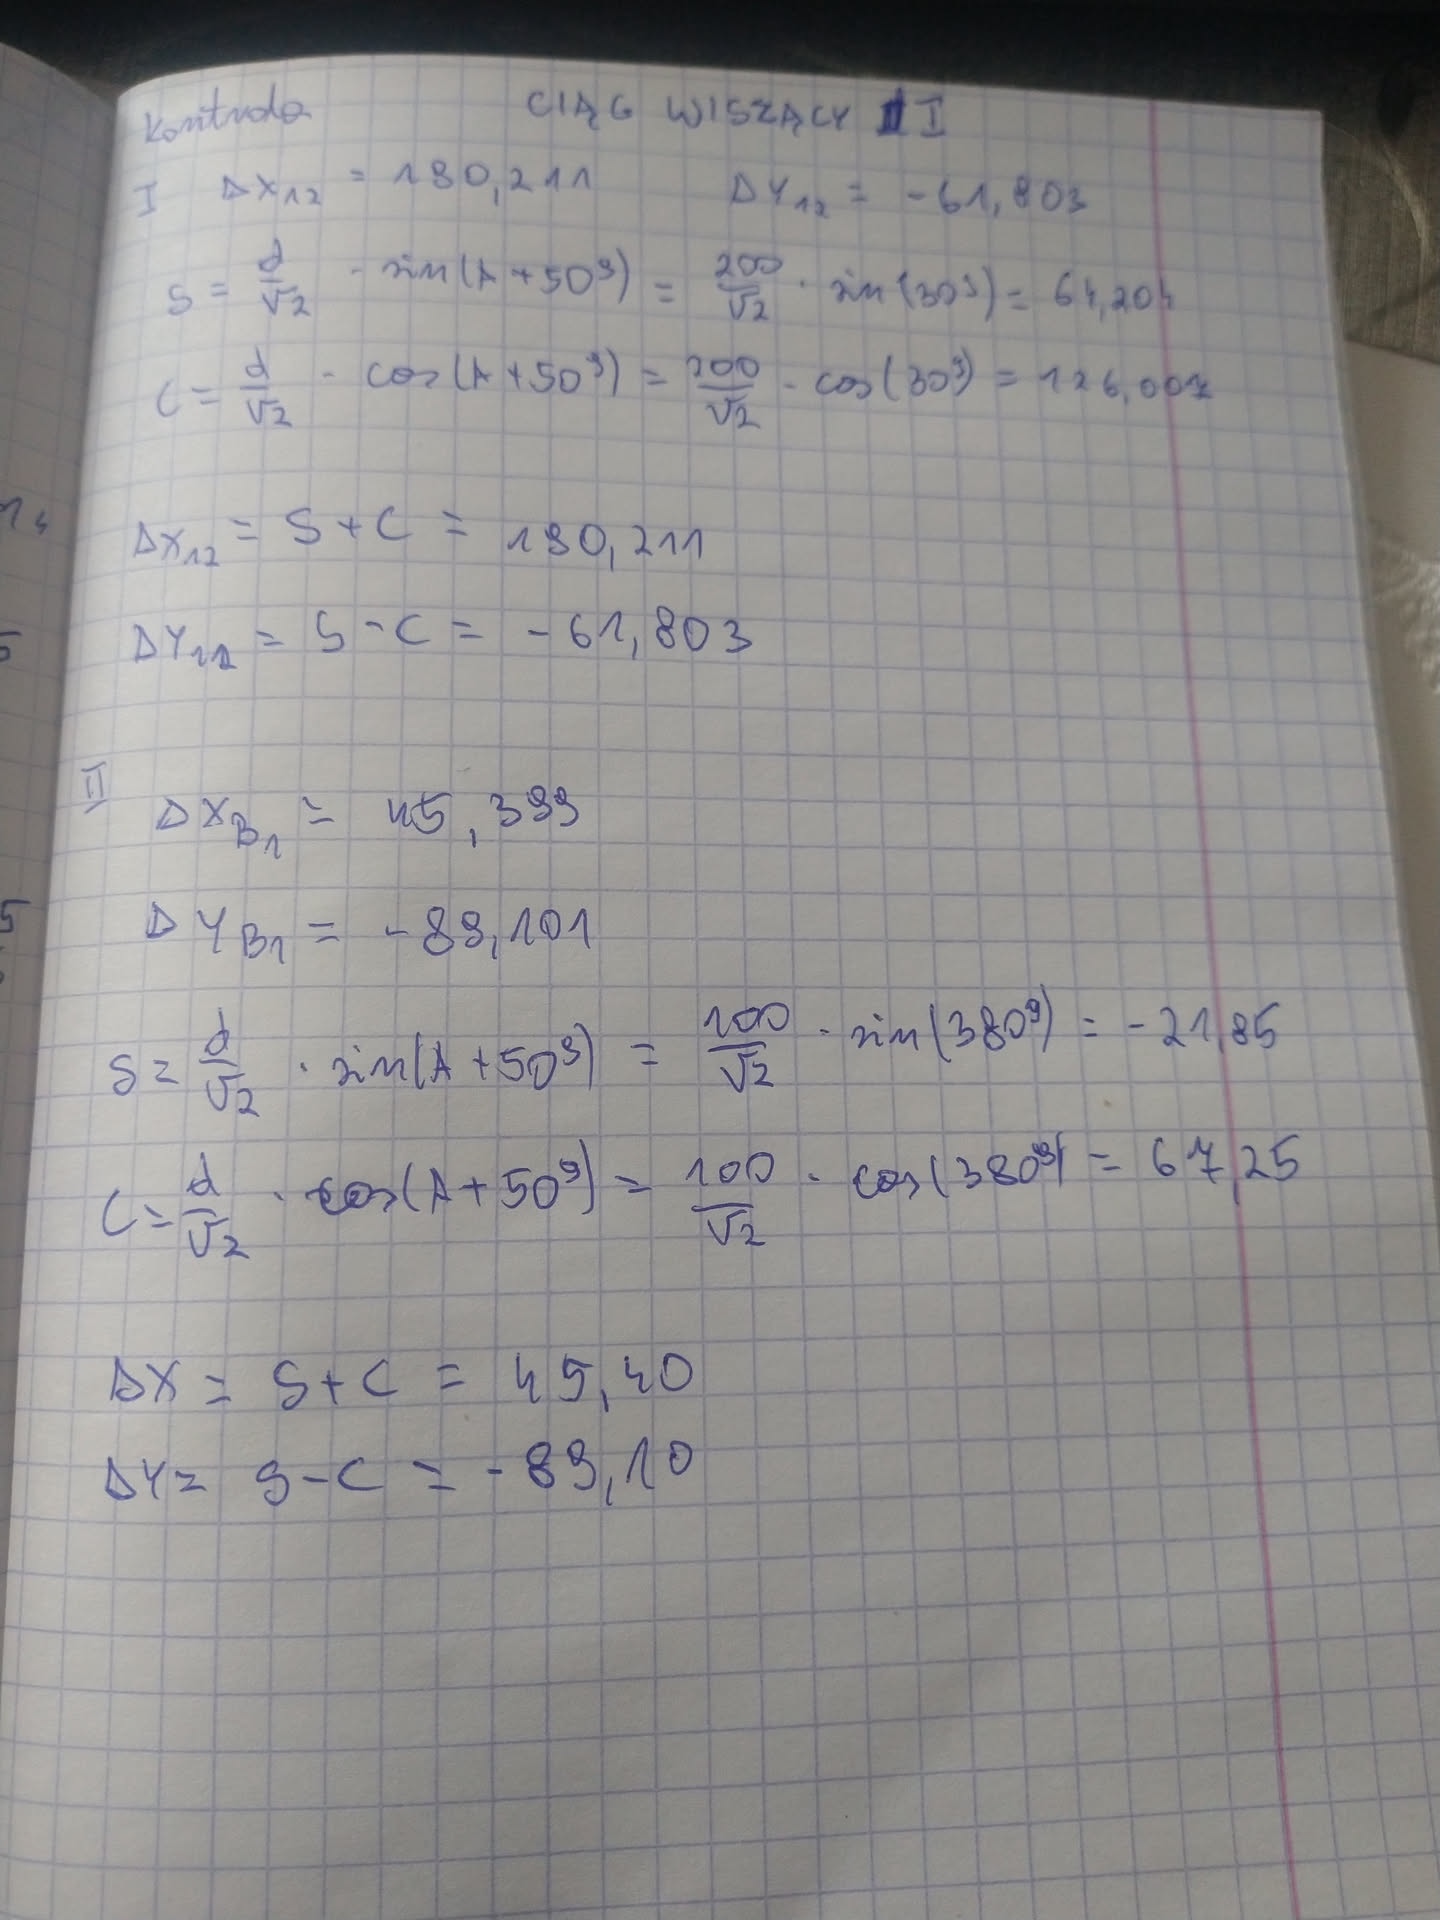 Kontrola CIĄG WISZĄCY I
I ΔX₁₂ = 190,211 ΔY₁₂ = -61,803
S = d/√2 · sin(A+50ᵍ) = 200/√2 · sin(30ᵍ) = 64,204
C = d/√2 · cos(A+50ᵍ) = 200/√2 · cos(30ᵍ) = 126,007
ΔX₁₂ = S+C = 190,211
ΔY₁₂ = S-C = -61,803
II
ΔX_B1 = 45,399
ΔY_B1 = -89,101
S = d/√2 · sin(A+50ᵍ) = 100/√2 · sin(380ᵍ) = -21,85
C = d/√2 · cos(A+50ᵍ) = 100/√2 · cos(380ᵍ) = 67,25
ΔX = S+C = 45,40
ΔY = S-C = -89,10